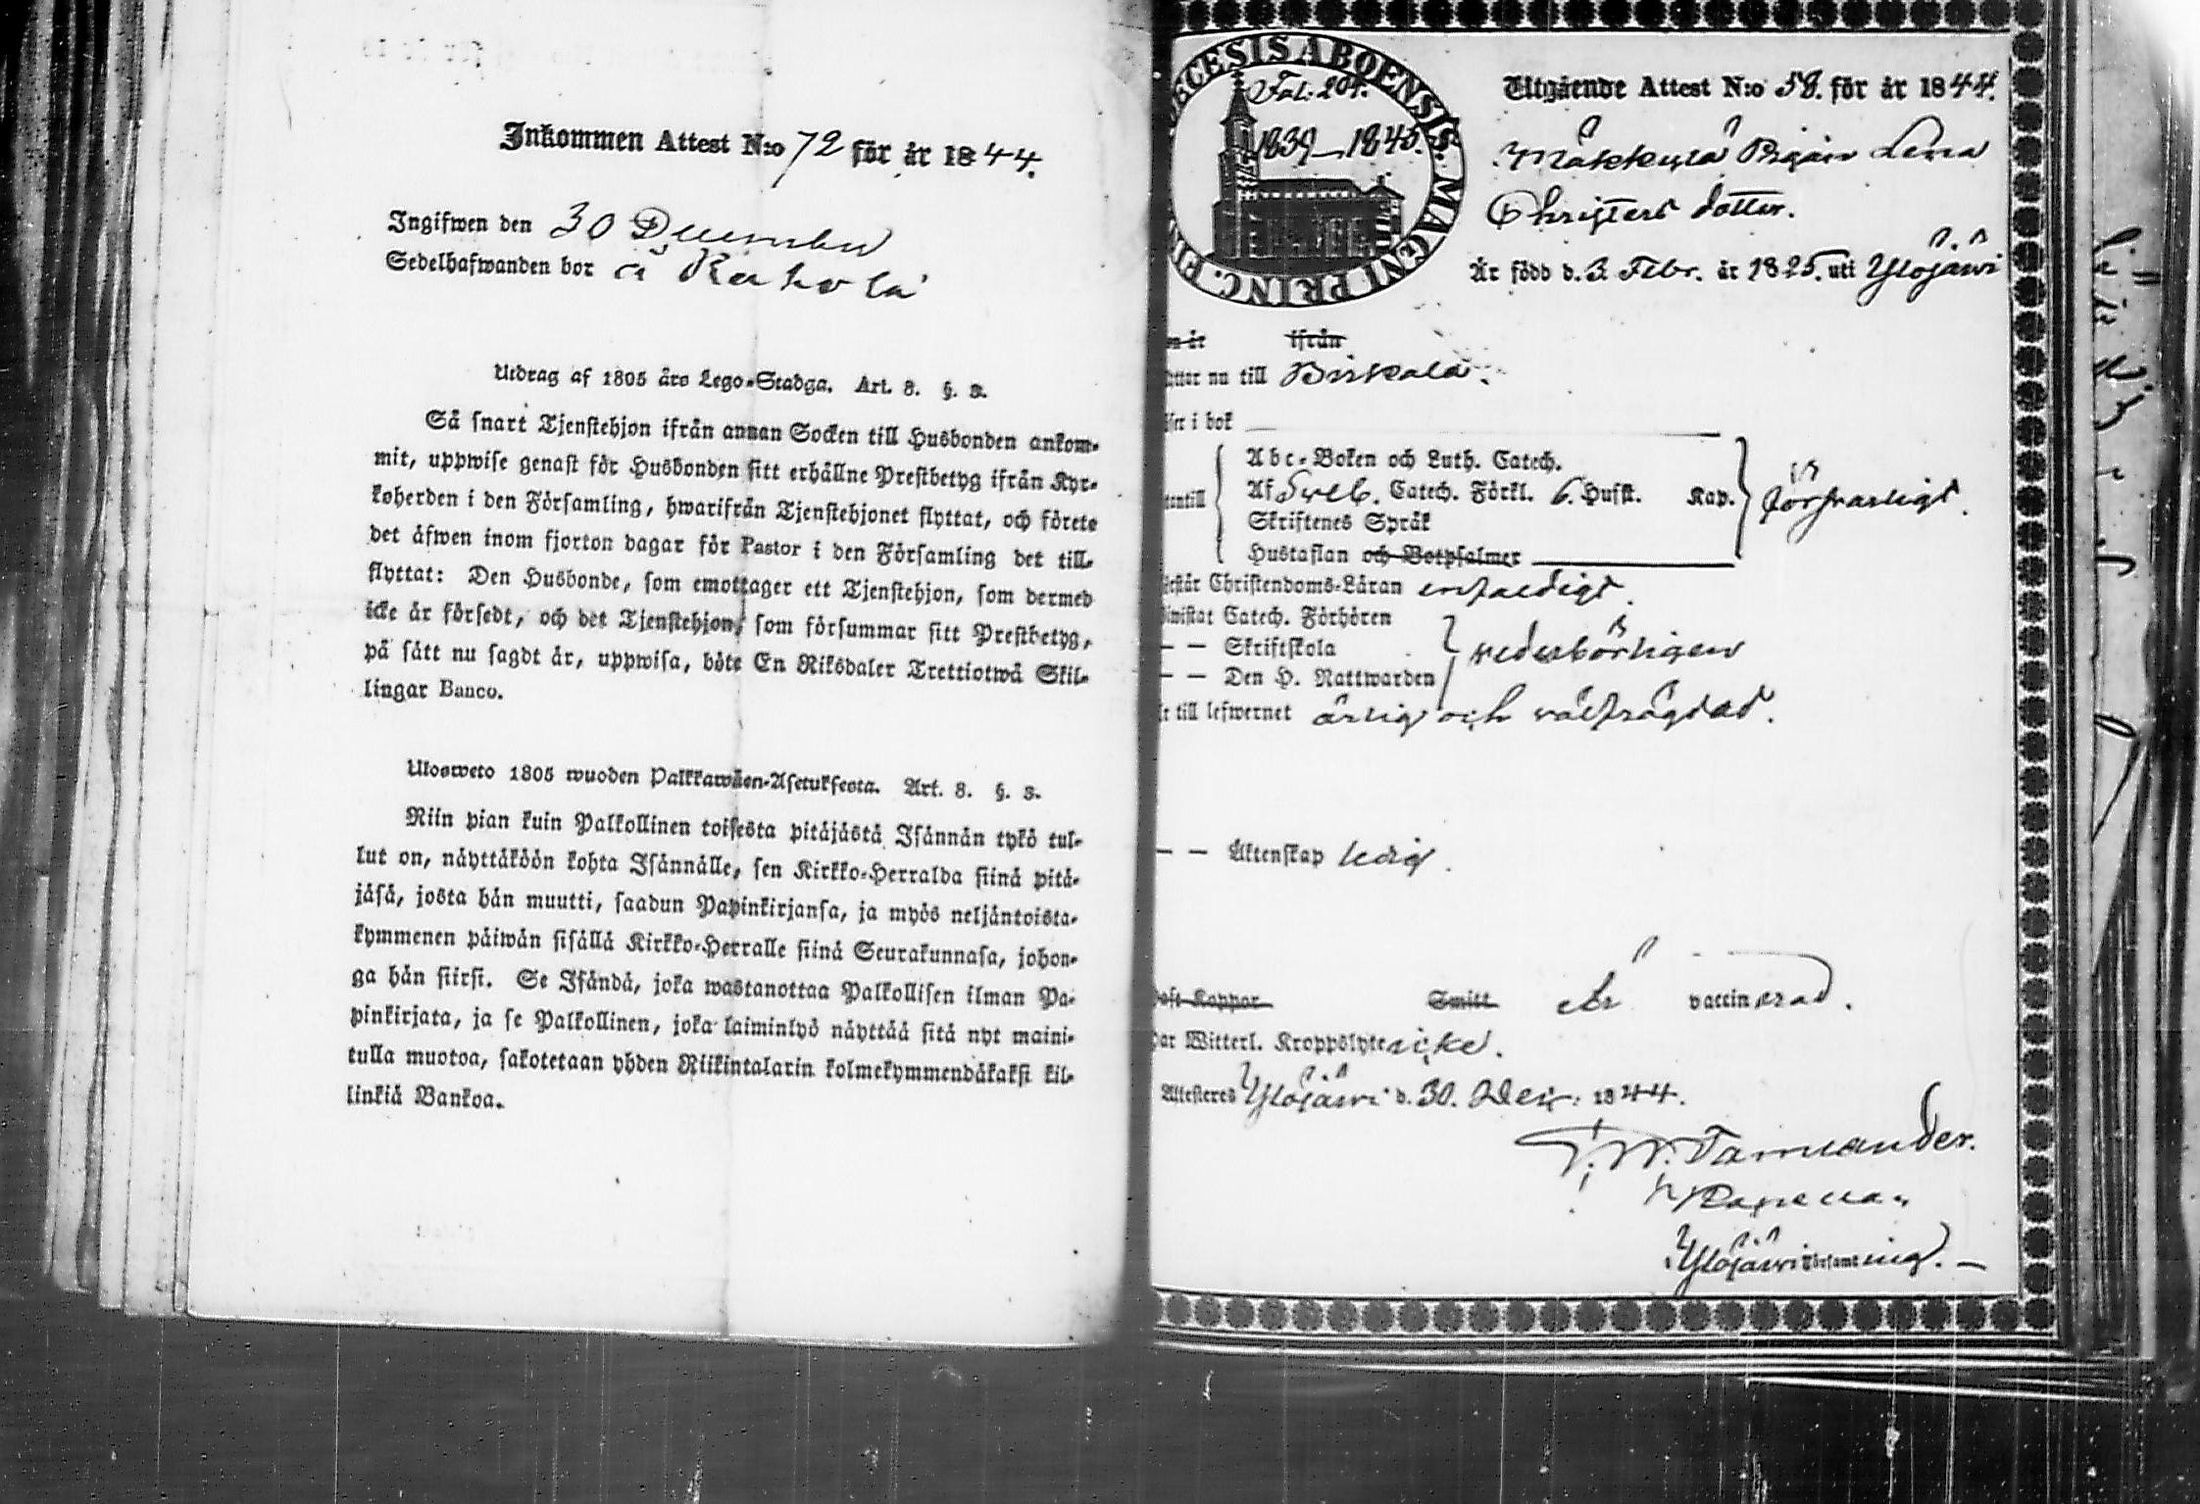 Inkommen Attest N:o 72 för år 1844.
Ingifwen den 30 December
Sedelhafwanden bor å Rahola
Utdrag af 1805 års Lego-Stadga. Art. 8. §. 3.
Så snart Tjenstehjon ifrån annan Socken till Husbonden ankom-
mit, uppwise genast för Husbonden sitt erhållne Prestbetyg ifrån Kyr-
koherden i den Församling, hwarifrån Tjenstehjonet flyttat, och förete
det äfwen inom fjorton dagar för Pastor i den Församling det till-
flyttat: Den Husbonde, som emottager ett Tjenstehjon, som dermed
icke är försedt, och det Tjenstehjon, som försummar sitt Prestbetyg,
på sätt nu sagdt är, uppwisa, böte En Riksdaler Trettiotwå Skil-
lingar Banco.
Ulosweto 1805 wuoden Palkkawäen-Asetuksesta. Art. 8. §. 3.
Niin pian kuin Palkollinen toisesta pitäjästä Isännän tykö tul-
lut on, näyttäköön kohta Isännälle, sen Kirkko-Herralda siinä pitä-
jäsä, josta hän muutti, saadun Papinkirjansa, ja myös neljäntoista-
kymmenen päiwän sisällä Kirkko-Herralle siinä Seurakunnasa, johon-
ga hän siirsi. Se Isändä, joka wastanottaa Palkollisen ilman Pa-
pinkirjata, ja se Palkollinen, joka laiminlyö näyttää sitä nyt maini-
tulla muotoa, sakotetaan yhden Riikintalarin kolmekymmendäkaksi kil-
linkiä Bankoa.
ŒCESIS ABOENSIS. MAGNI PRINC. FIN
Fol. 201.
1839–1845.
Utgående Attest N:o 58. för år 1844.
Mäkkylä Pigan Lena
Christers dotter.
Är född d. 3 Febr. år 1825. uti Ylöjärwi
n år ifrån
ttar nu till Birkala.
ser i bok
Abc-Boken och Luth. Catech.
nantill Af Sveb. Catech. Förkl. 6. Husst. Kap. försvarligt.
Skriftenes Språk
Hustaflan och Botpsalmer
rstår Christendoms-Läran enfaldigt.
iwistat Catech. Förhören
— — Skriftskola wederbörligen
— — Den H. Nattwarden
r till lefwernet ärlig och välfrägdad.
— — Äktenskap ledig.
aft Koppor Smitt Är vaccinerad.
ar Witterl. Kroppslyte icke.
Attesteres Ylöjärwi d. 30. Dec. 1844.
Ylöjärwi Församling.